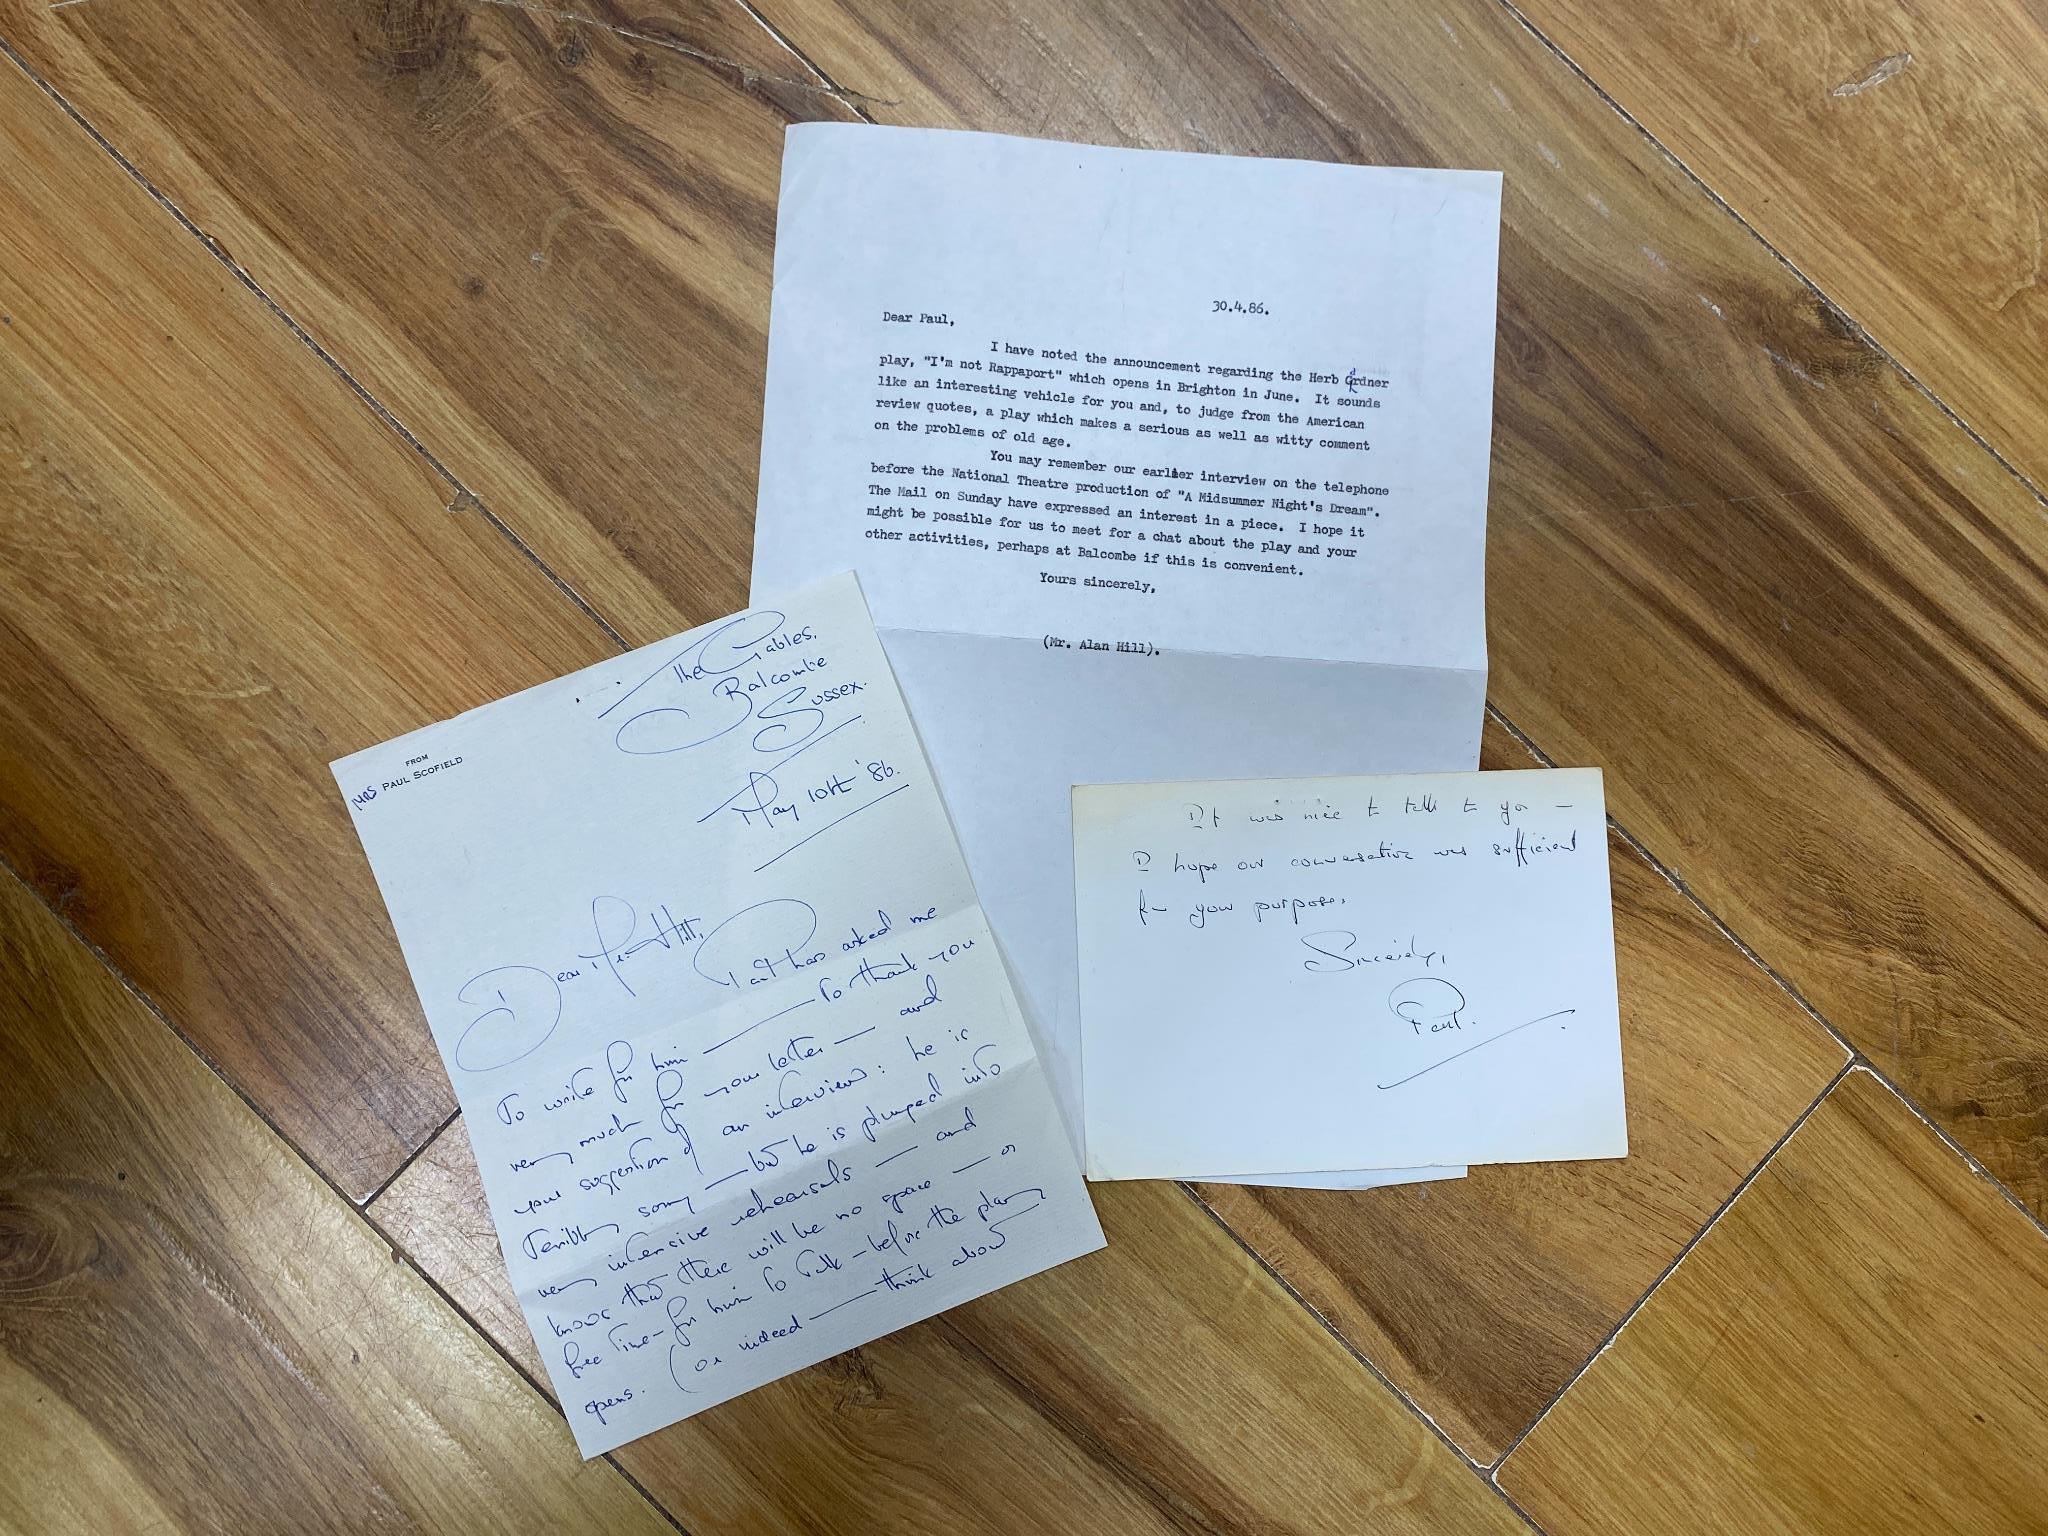 30.4.86.
Dear Paul,
I have noted the announcement regarding the Herb Grdner
play, "I'm not Rappaport" which opens in Brighton in June. It sounds
like an interesting vehicle for you and, to judge from the American
review quotes, a play which makes a serious as well as witty comment
on the problems of old age.
You may remember our earlier interview on the telephone
before the National Theatre production of "A Midsummer Night's Dream".
The Mail on Sunday have expressed an interest in a piece. I hope it
might be possible for us to meet for a chat about the play and your
other activities, perhaps at Balcombe if this is convenient.
Yours sincerely,
(Mr. Alan Hill).
The Gables,
Balcombe
Sussex.
FROM
MRS PAUL SCOFIELD
May 10th '86.
Dear Mr Hill,
Paul has asked me
to write for him — to thank you
very much for your letter — and
your suggestion of an interview: he is
terribly sorry — but he is plunged into
very intensive rehearsals — and
knows that there will be no space — or
free time - for him to talk - before the play
opens. (Or indeed — think about
It was nice to talk to you —
I hope our conversation was sufficient
for your purpose.
Sincerely,
Paul.